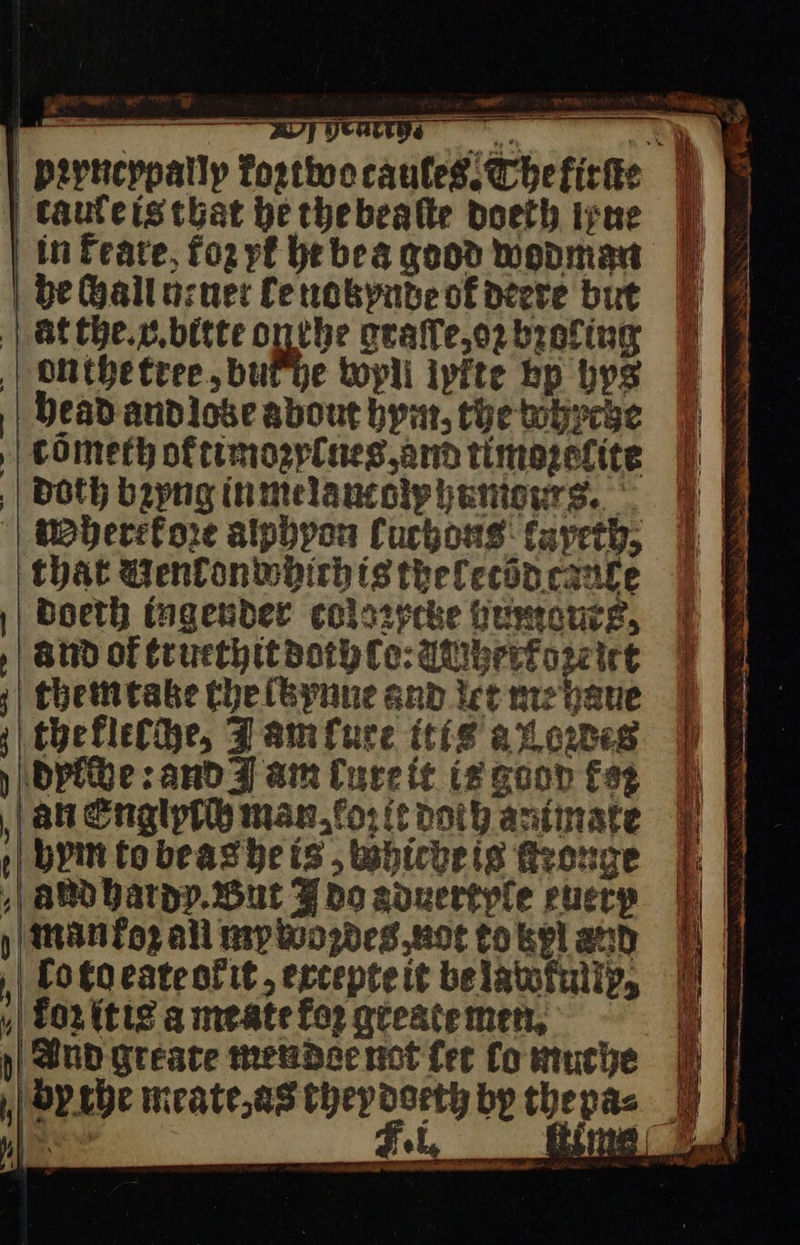 pryncyppally for two causes. The firste
cause is that he the beaste doeth lyue
in feare, for yf he be a good wodman
he shall neuer se no kynde of deere but
at the .x. bitte on the grasse, or brosing
on the tree, but he wyll lyfte vp hys
head and loke about hym, the whyche
cometh of timorysnes, and timorosite
doth bryng in melancoly humours.
Wherefore al phyon suchons sayeth,
that Uenson which is the second cause
doeth ingender colorycke humoures,
and of trueth it doth so: Wherfore let
them take the skynne and let me haue
the fleshe, I am sure it is a Lordes
dyshe: and I am sure it is good for
an Englysh man, for it doth animate
hym to be as he is, whiche is stronge
and hardy. But I do aduertyse euery
man for all my wordes, not to kyl and
so to eate of it, excepte it be lawfully,
for it is a meate for greate men.
And greate men doe not set so muche
by the meate, as they doeth by the pas
F.i. stime